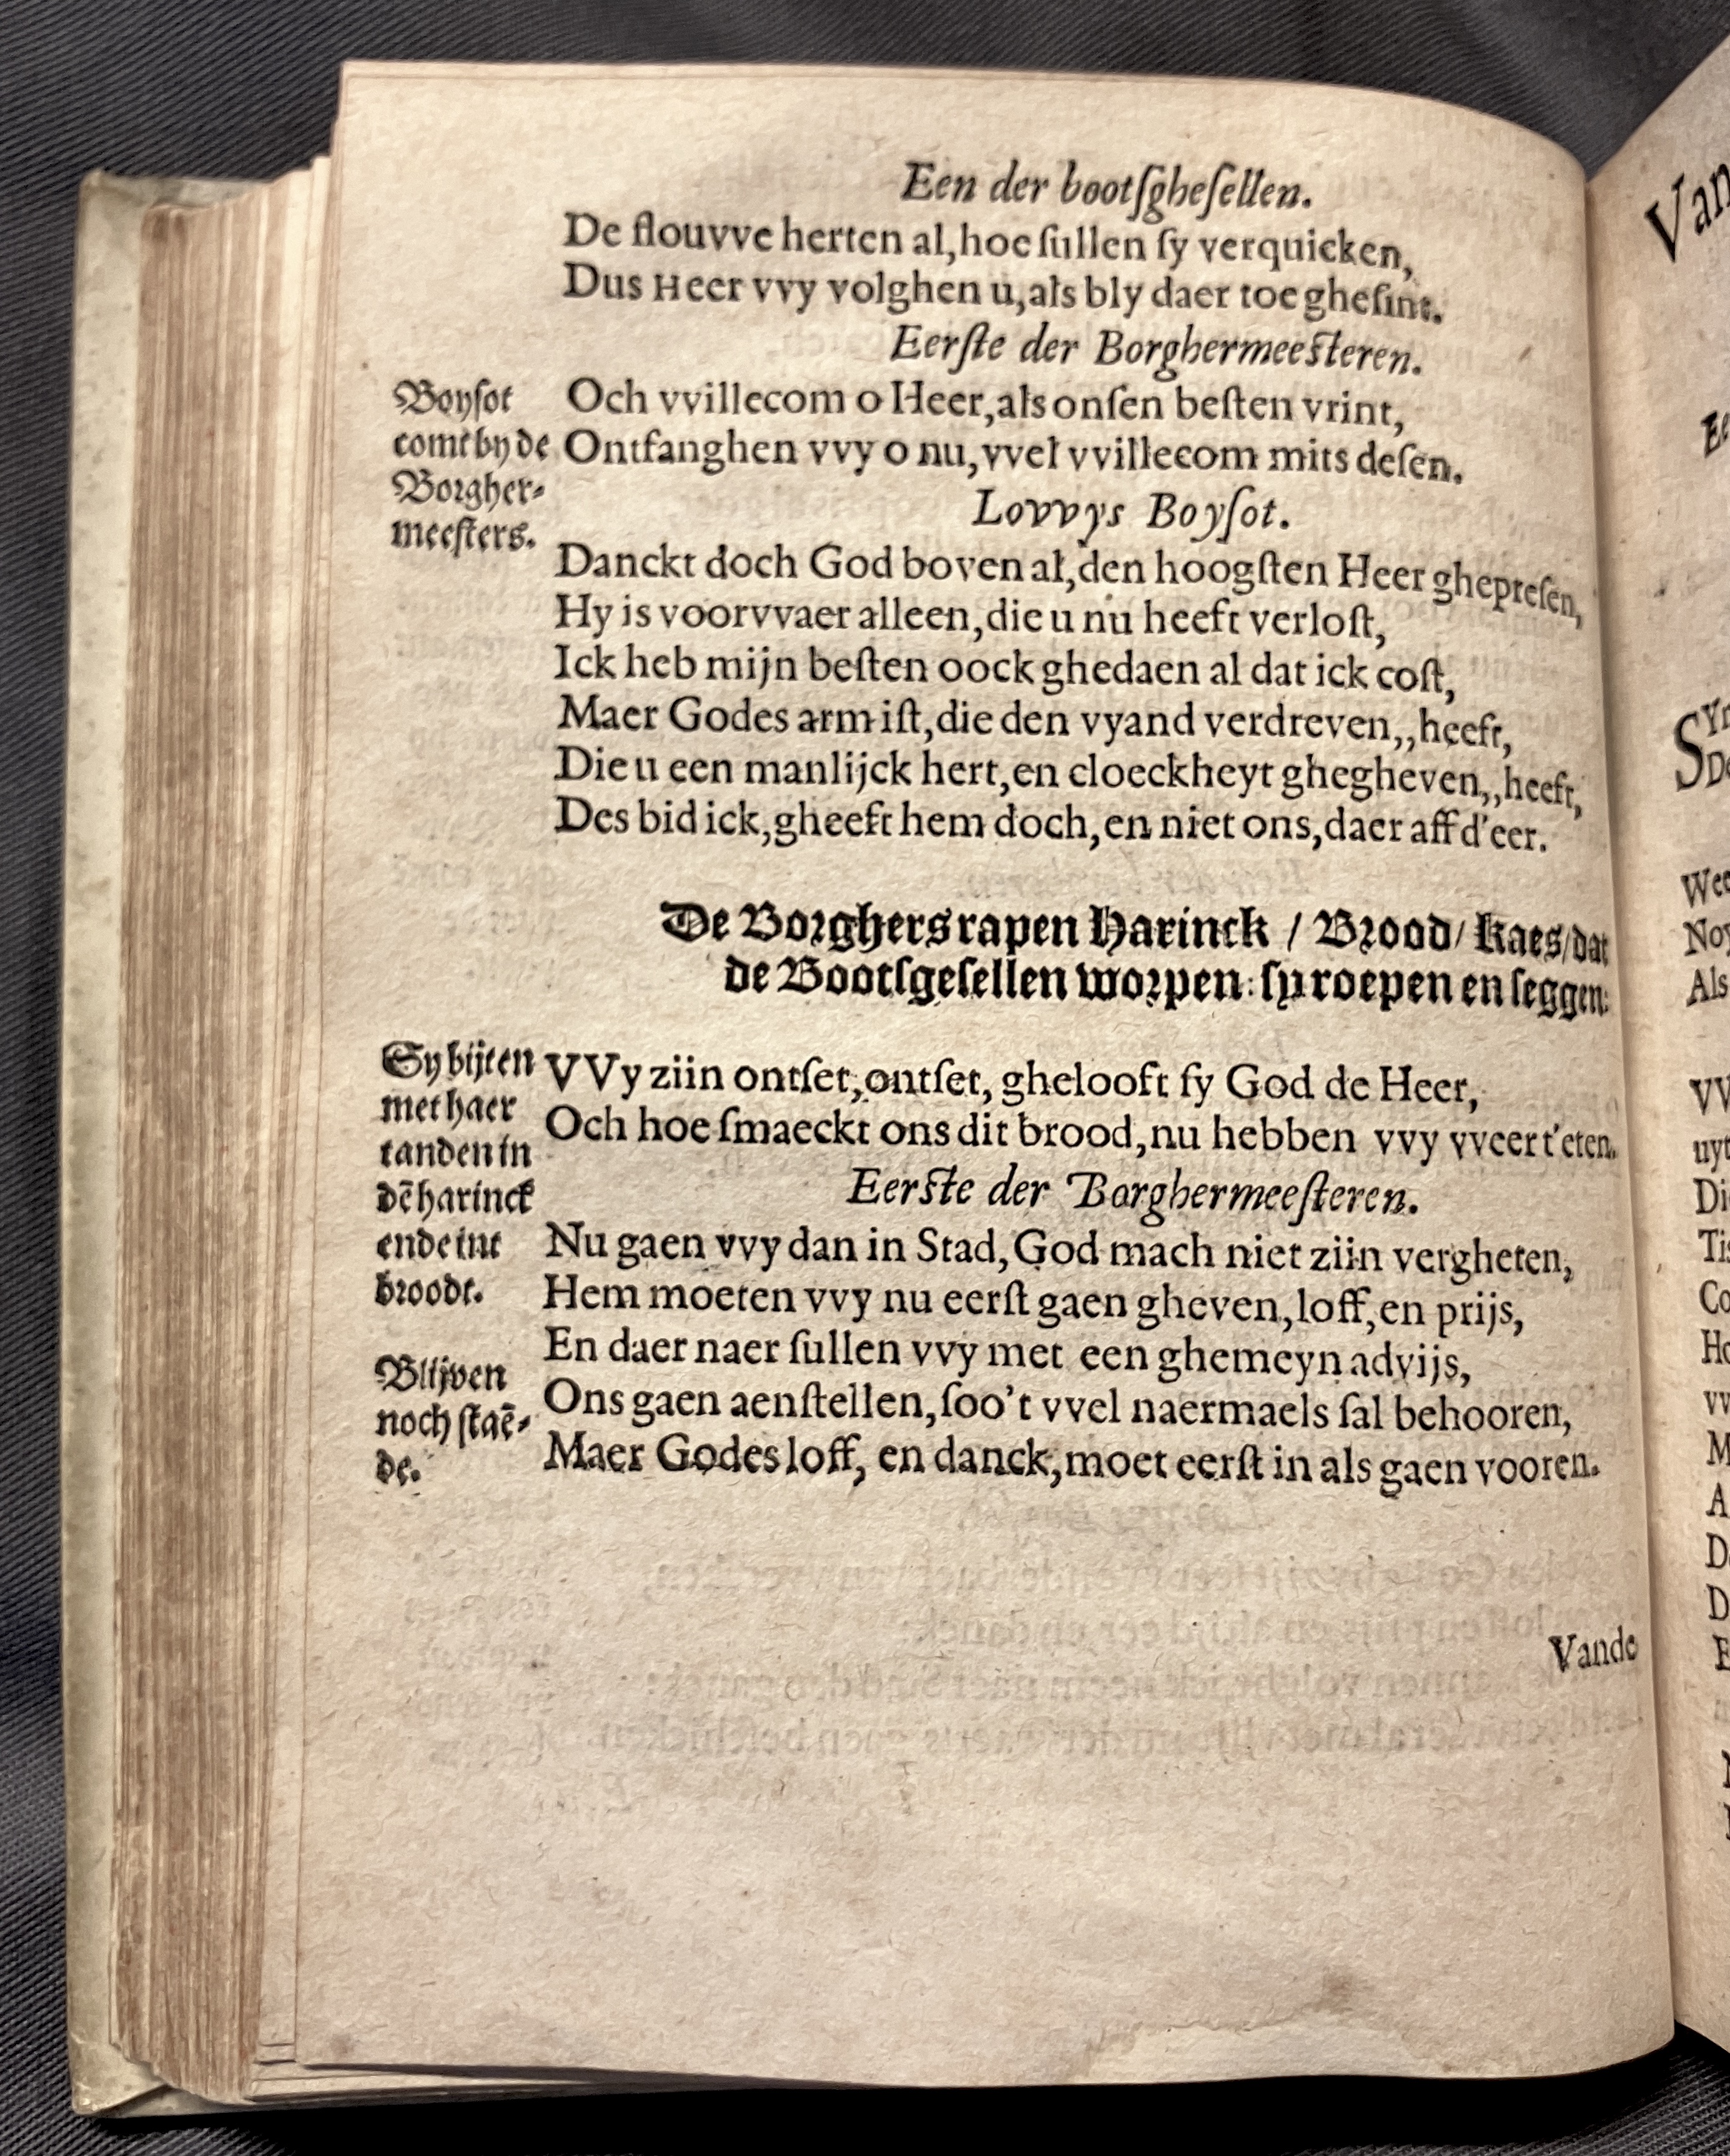 Een der bootſgheſellen.
De flouvve herten al, hoe ſullen ſy verquicken,
Dus Heer vvy volghen u, als bly daer toe gheſint.
Eerſte der Borghermeeſteren.
Boyſot
comt by de
Borgher-
meeſters.
Och vvillecom o Heer, als onſen beſten vrint,
Ontfanghen vvy o nu, vvel vvillecom mits deſen.
Lovvys Boyſot.
Danckt doch God boven al, den hoogſten Heer ghepreſen,
Hy is voorvvaer alleen, die u nu heeft verloſt,
Ick heb mijn beſten oock ghedaen al dat ick coſt,
Maer Godes arm iſt, die den vyand verdreven,, heeft,
Die u een manlijck hert, en cloeckheyt ghegheven,, heeft,
Des bid ick, gheeft hem doch, en niet ons, daer aff d'eer.
De Borghers rapen Harinck / Brood / Kaes / dat
de Bootſgeſellen worpen: ſy roepen en ſeggen:
Sy bijten
met haer
tanden in
dē harinck
ende int
broodt.
VVy ziin ontſet, ontſet, ghelooft ſy God de Heer,
Och hoe ſmaeckt ons dit brood, nu hebben vvy vveer t'eten.
Eerſte der Borghermeeſteren.
Nu gaen vvy dan in Stad, God mach niet ziin vergheten,
Hem moeten vvy nu eerſt gaen gheven, loff, en prijs,
En daer naer ſullen vvy met een ghemeyn advijs,
Blijven
noch ſtaē-
de.
Ons gaen aenſtellen, ſoo't vvel naermaels ſal behooren,
Maer Godes loff, en danck, moet eerſt in als gaen vooren.
Vande
Van
Wee
Als
VV
uyt